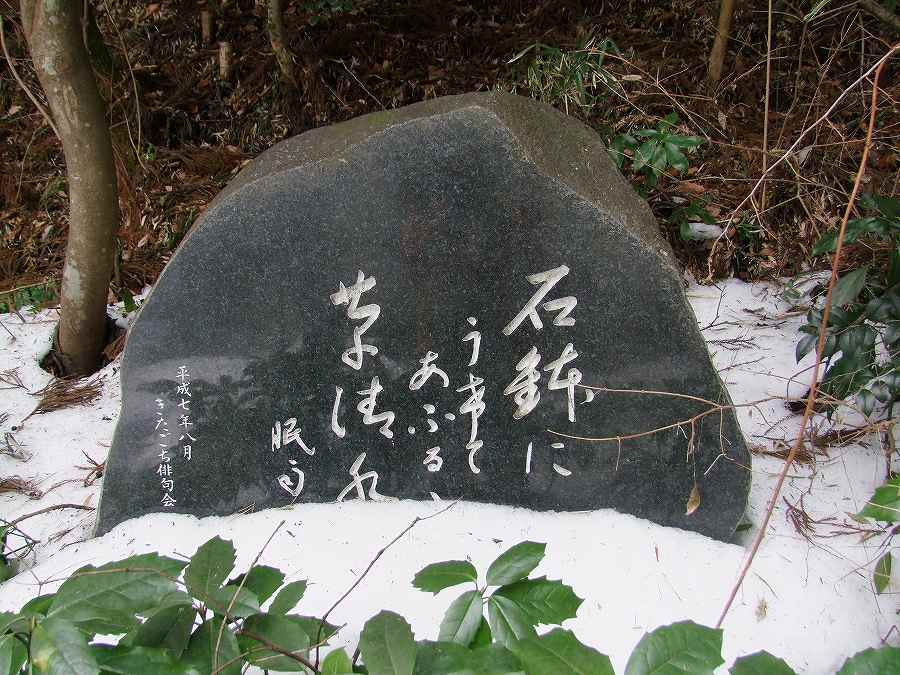 石鉢に
うけて
あふるゝ
草清水
眠雨
平成七年八月
きたごち俳句会